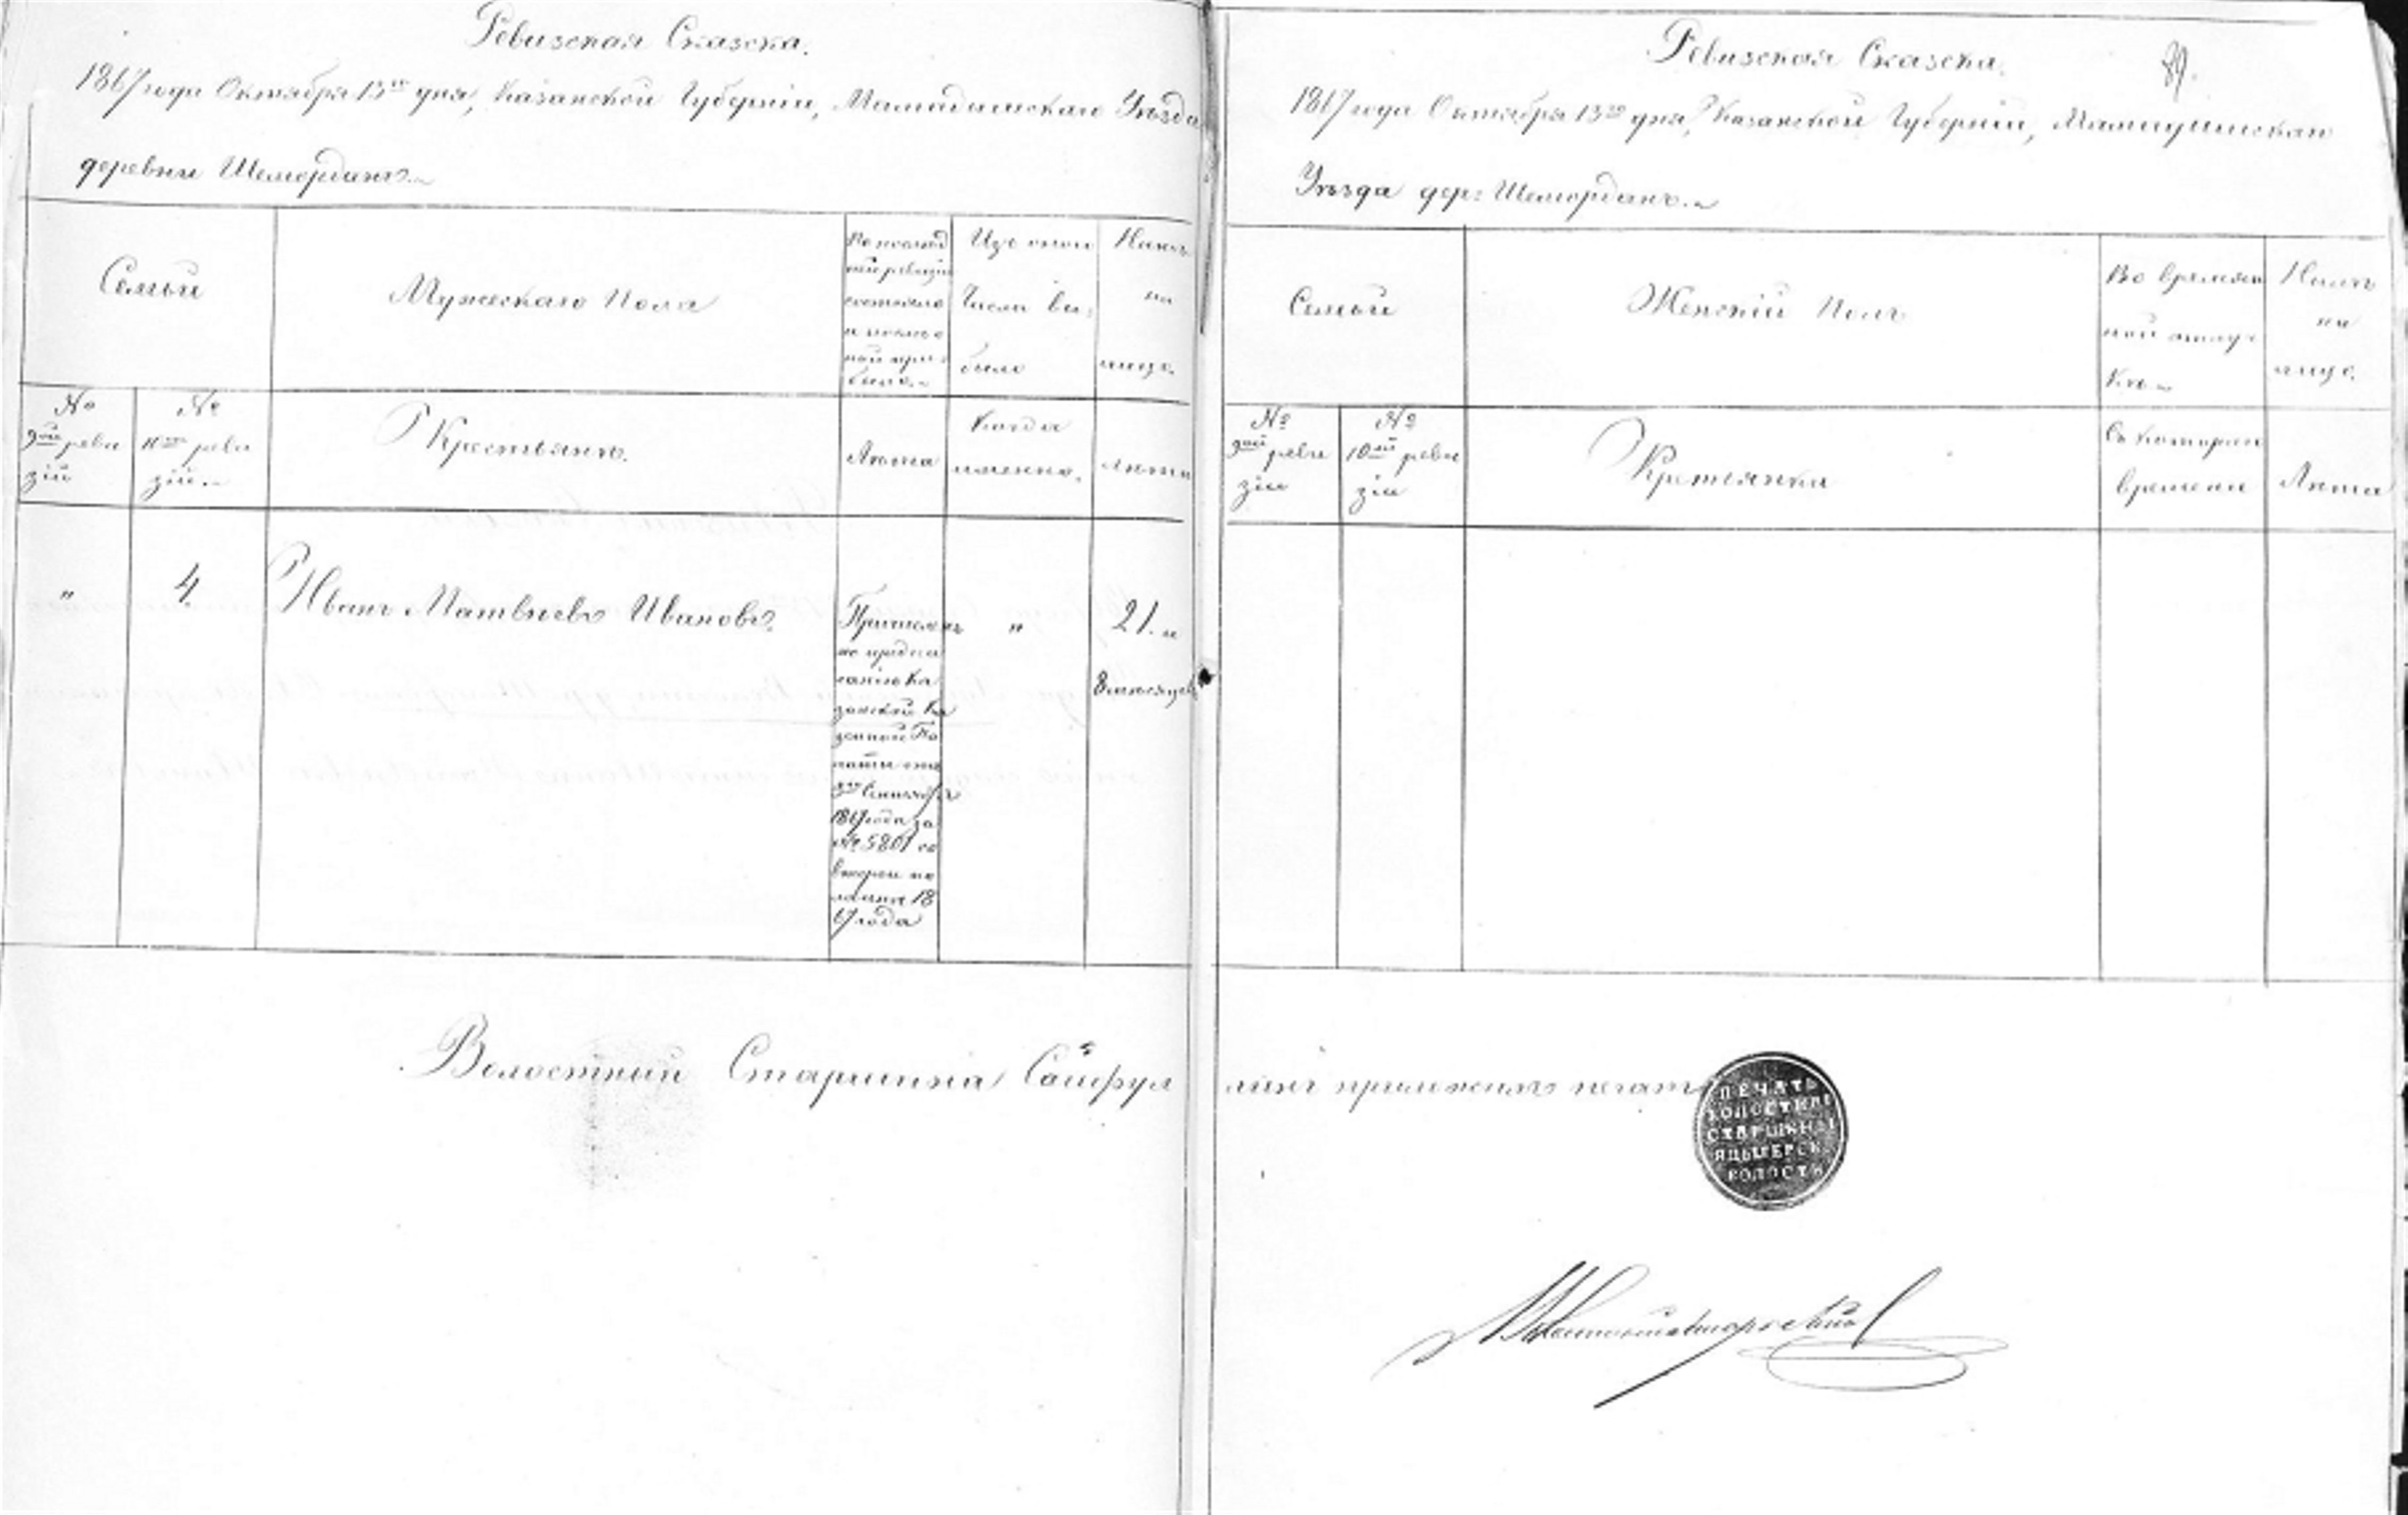 Ревизская Сказка.
1867 года Октября 13го дня, Казанской Губернiи, Мамадышскаго Уѣзда
деревни Шемордана.
Семьи
Мужескаго Пола
По послѣд
ней ревизiи
состояло
и послѣ о
ной при
было.
Изъ того
числа вы
было
Нынѣ
на
лицо.
№
9ой реви
зiи
№
10ой реви
зiи.
Крестьянъ.
Лѣта
Когда
именно.
Лѣта
"
4.
Иванъ Матвѣевъ Ивановъ.
Причисленъ
по предпи
санiю Ка
занской Ка
зенной Па
латы отъ
Сентября
1867 года за
№ 5801 со
второй по
ловины 18
67 года
"
21. и
8 мѣсяцевъ
Ревизская Сказка.
1867 года Октября 13го дня, Казанской Губернiи, Мамадышскаго
Уѣзда дер: Шемордана.
Семьи
Женскiй Полъ
Во времян
ной отлуч
кѣ
Нынѣ
на
лицо.
№
9ой реви
зiи
№
10ой реви
зiи
Крестьянка
Съ котораго
времени
Лѣта
Волостный Старшина Сайфуллинъ приложилъ печать
ПЕЧАТЬ
ВОЛОСТНАГО
СТАРШИНЫ
ВОЛОСТИ